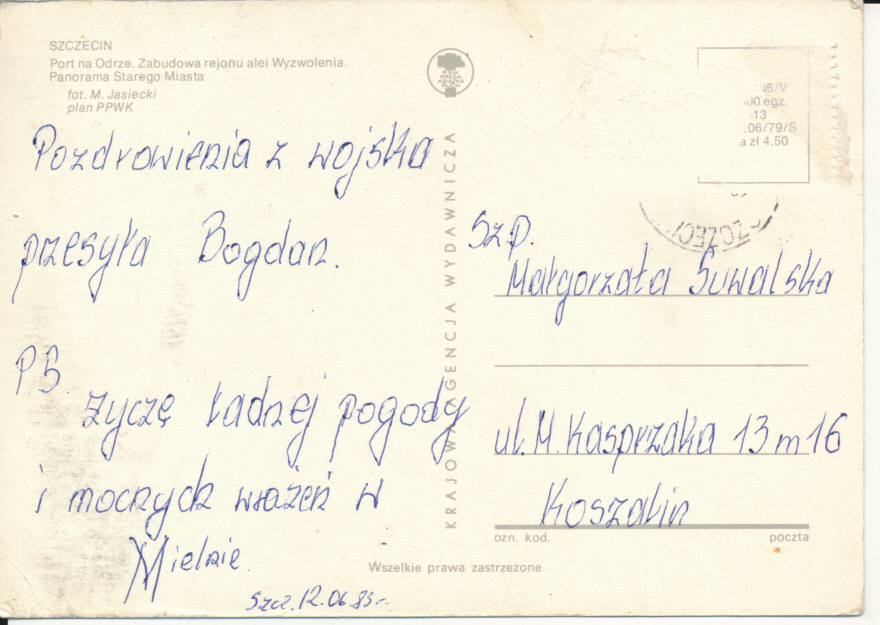 SZCZECIN
Port na Odrze. Zabudowa rejonu alei Wyzwolenia.
Panorama Starego Miasta
fot. M. Jasiecki
plan PPWK
Pozdrowienia z wojska
przesyła Bogdan.
P.S.
życzę ładnej pogody
i mocnych wrażeń w
Mielnie.
Szcz. 12.06.83r.
KRAJOWA AGENCJA WYDAWNICZA
00 egz.
13
06/79/S
a zł 4,50
Sz.p.
Małgorzata Suwalska
ul. M. Kasprzaka 13 m 16
Koszalin
ozn. kod.
poczta
Wszelkie prawa zastrzeżone